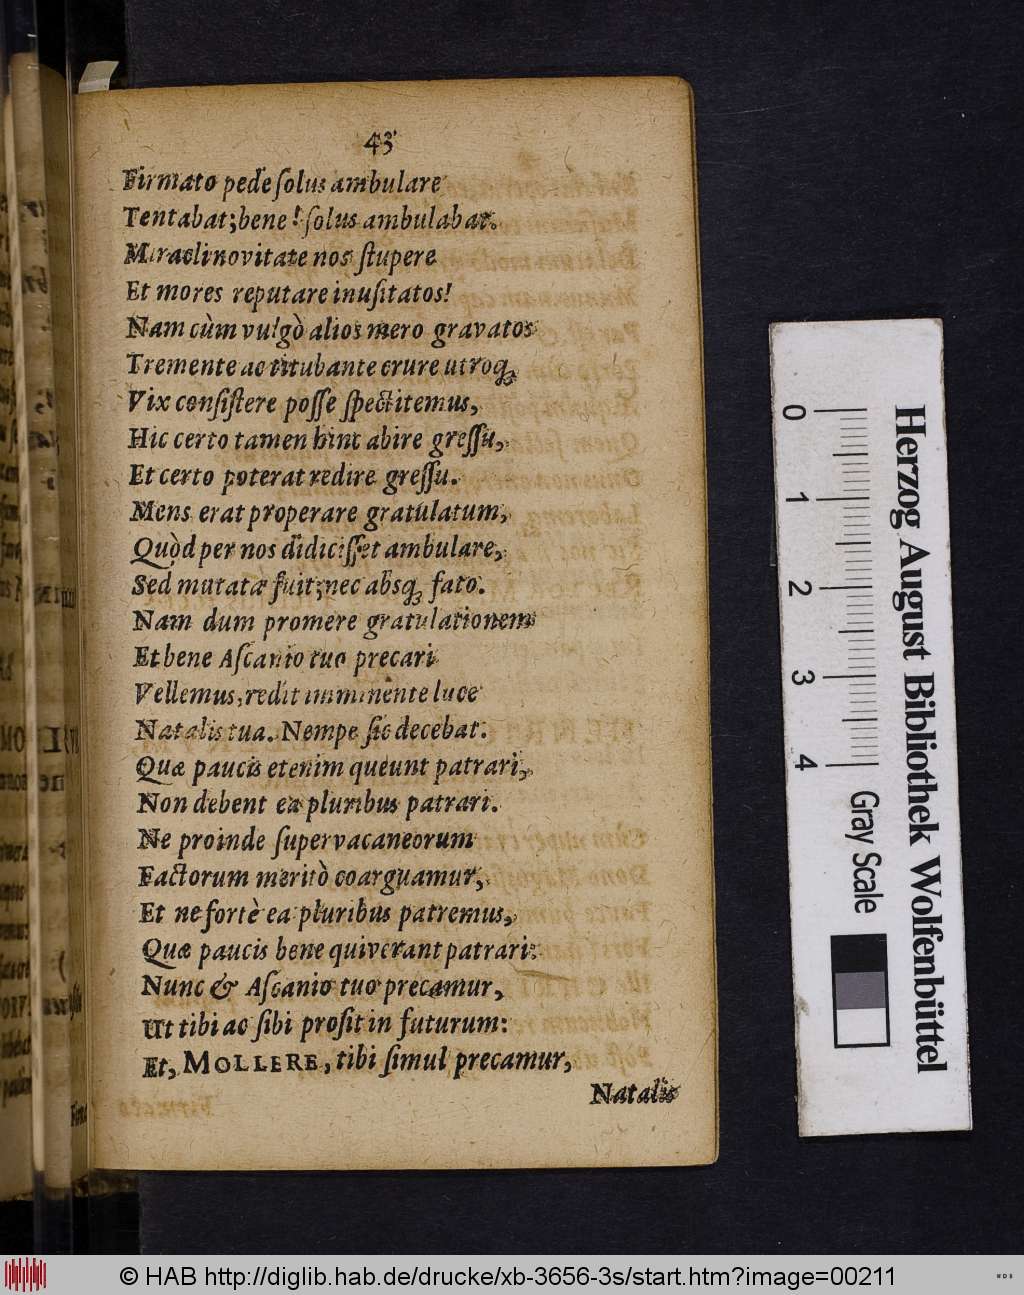 43
Firmato pede ſolus ambulare
Tentabat; bene! ſolus ambulabat.
Miracli novitate nos ſtupere
Et mores reputare inuſitatos!
Nam cùm vulgò alios mero gravatos
Tremente ac titubante crure utroq;
Vix conſiſtere poſſe ſpectitemus,
Hic certo tamen hinc abire greſſu,
Et certo poterat redire greſſu.
Mens erat properare gratulatum,
Quòd per nos didiciſſet ambulare,
Sed mutata fuit; nec absq; fato.
Nam dum promere gratulationem
Et bene Aſcanio tuo precari
Vellemus, redit imminente luce
Natalis tua. Nempe ſic decebat.
Quæ paucis etenim queunt patrari,
Non debent ea pluribus patrari.
Ne proinde ſupervacaneorum
Factorum meritò coarguamur,
Et ne fortè ea pluribus patremus,
Quæ paucis bene quiverant patrari:
Nunc & Aſcanio tuo precamur,
Ut tibi ac ſibi proſit in futurum:
Et, MOLLERE, tibi ſimul precamur,
Natalis
0 1 2 3 4
Gray Scale
Herzog August Bibliothek Wolfenbüttel
© HAB http://diglib.hab.de/drucke/xb-3656-3s/start.htm?image=00211